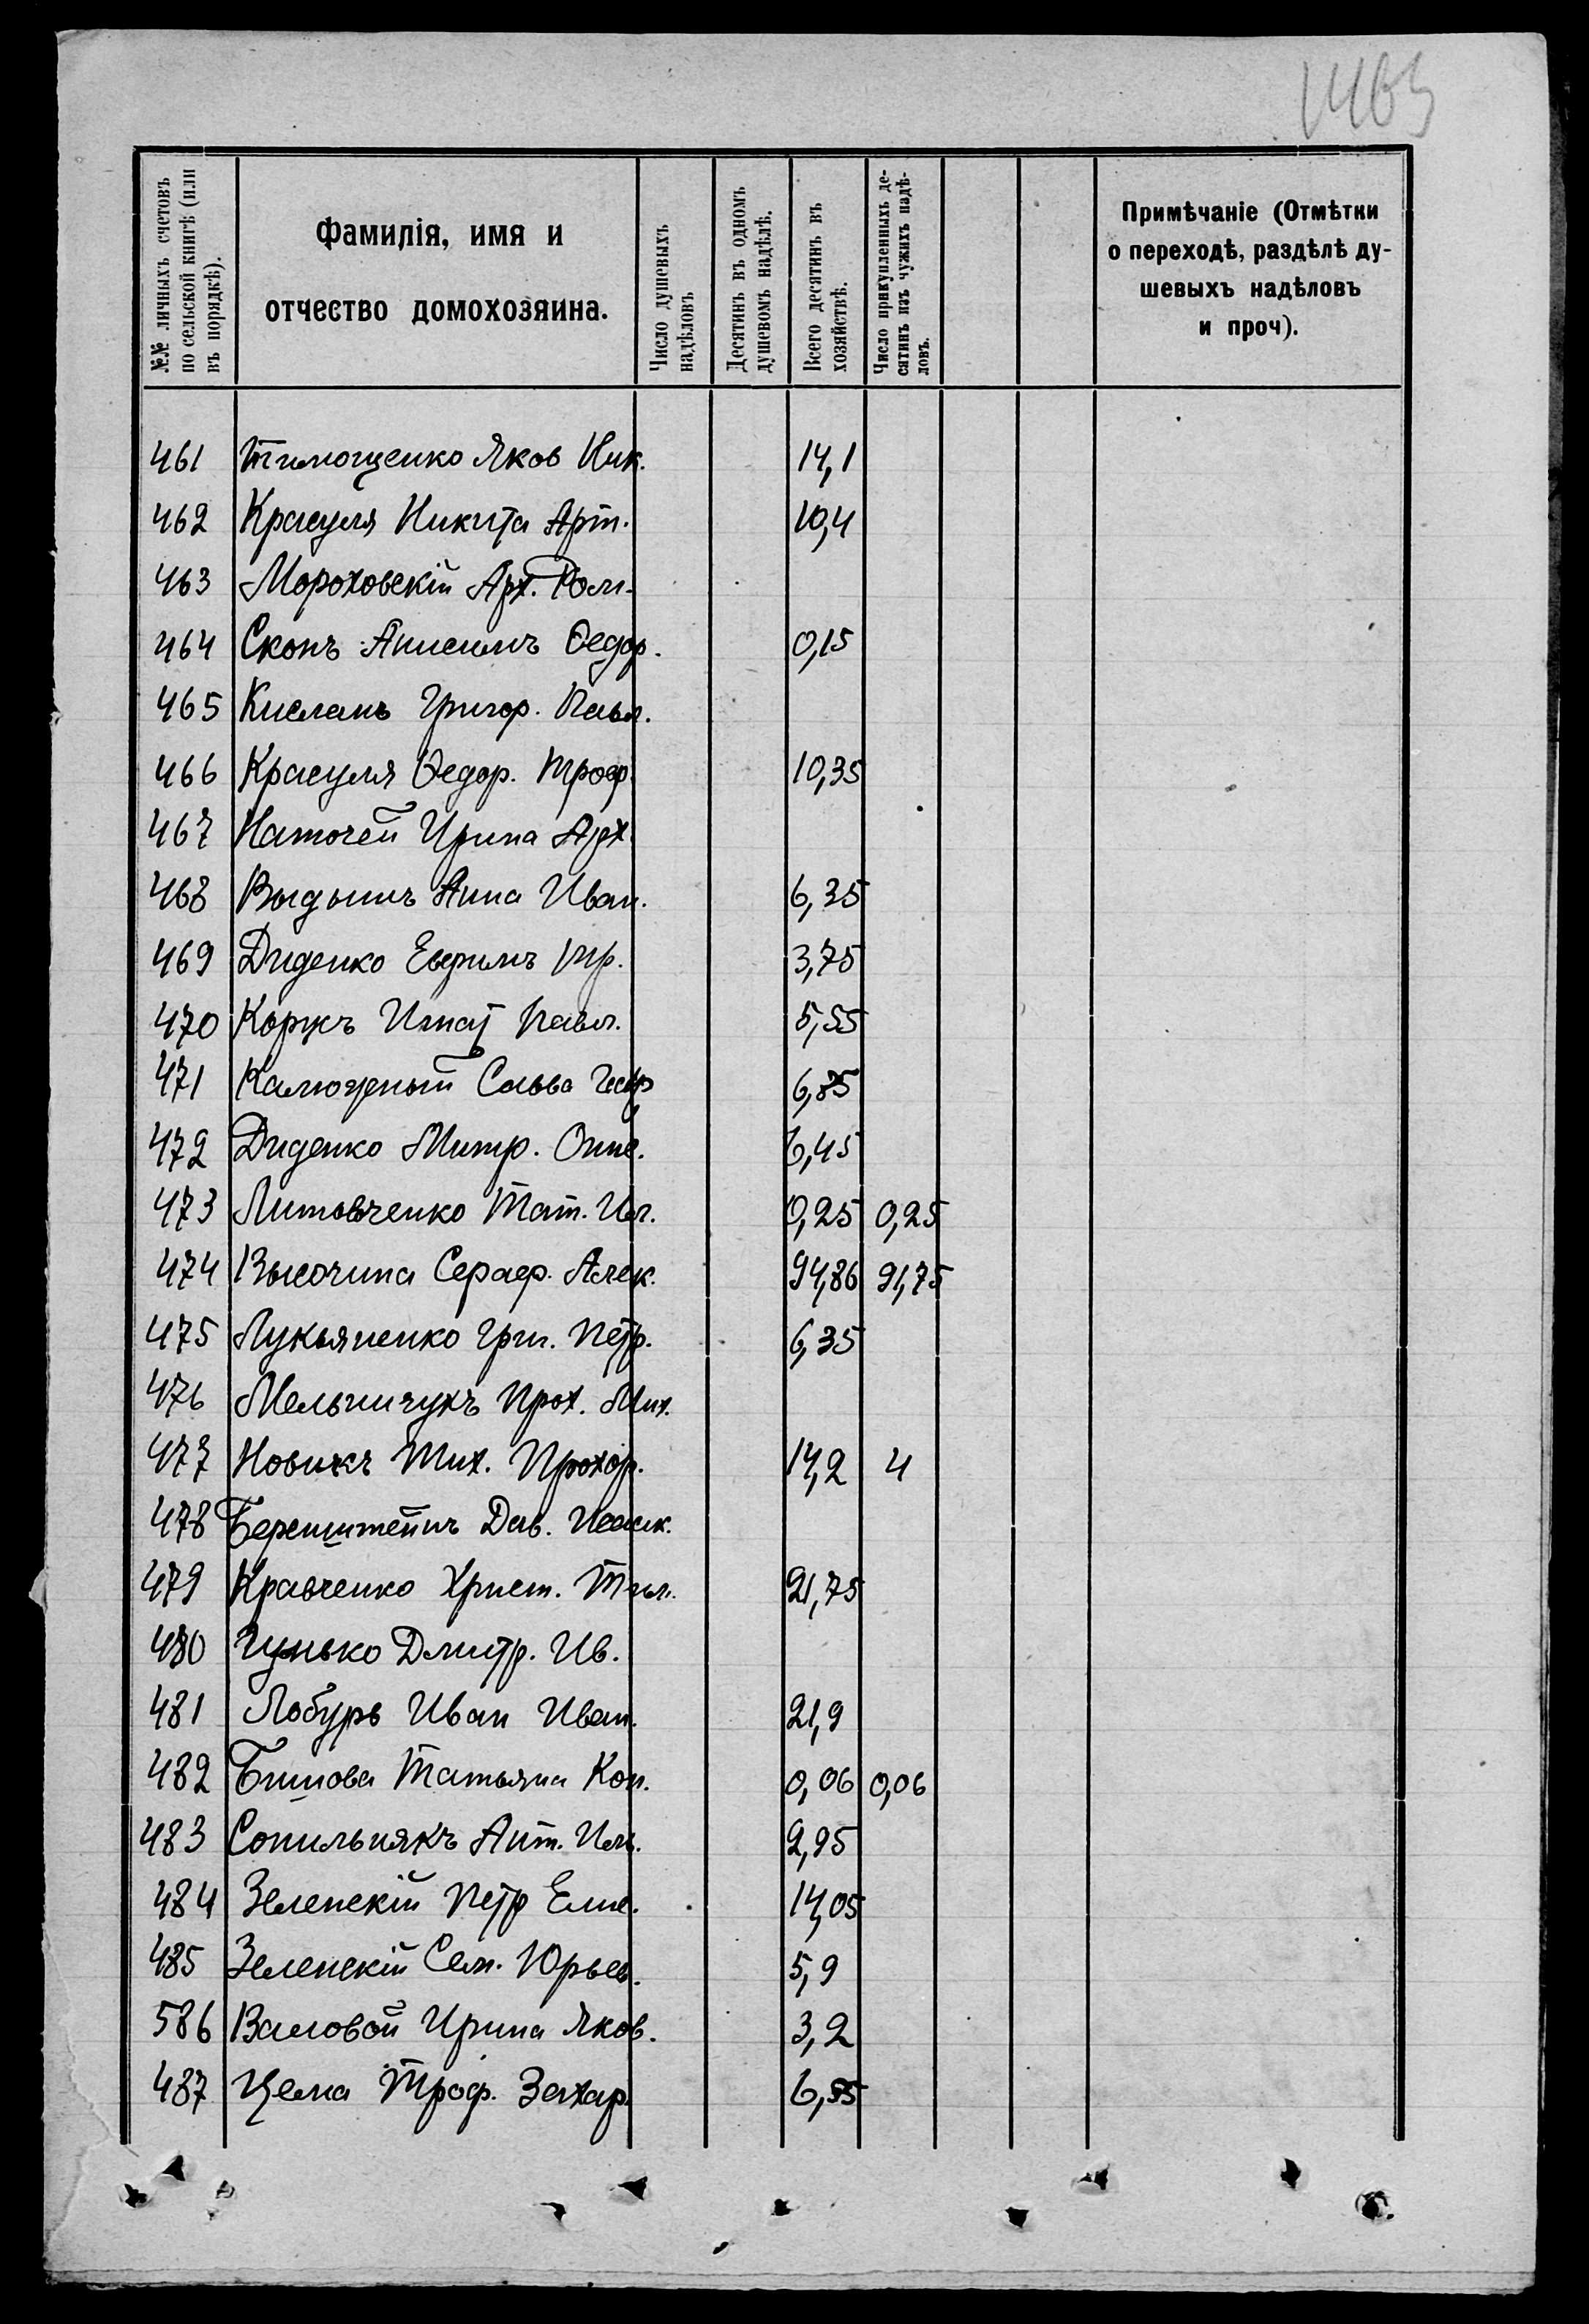 1463
№№ личныхъ счетовъ по сельской книгѣ (или въ порядкѣ).
Фамилія, имя и отчество домохозяина.
Число душевыхъ надѣловъ
Десятинъ въ одномъ душевомъ надѣлѣ.
Всего десятинъ въ хозяйствѣ.
Число прикупленныхъ десятинъ изъ чужихъ надѣловъ.
Примѣчаніе (Отмѣтки о переходѣ, раздѣлѣ душевыхъ надѣловъ и проч).
461 Тимощенко Яков Ник. 14,1
462 Красуля Никита Арт. 10,4
463 Мороховскій Арх. Ром.
464 Сконъ Анисимъ Ѳедор. 0,15
465 Кислань Григор. Павл.
466 Красуля Ѳедор. Троф. 10,35
467 Наточей Ирина Арх.
468 Выдышъ Анна Иван. 6,35
469 Диденко Евфимъ 3,75
470 Коржъ Игнат Павл. 5,55
471 Калюжный Савва 6,85
472 Диденко Митр. Онис. 6,45
473 Литовченко Тат. Ил. 0,25 0,25
474 Высочина Сераф. Алек. 94,86 91,75
475 Лукьяненко Гри. Петр. 6,35
476 Мельничукъ Прох. Мих.
477 Новикъ Тих. Прохор. 14,2 4
478 Беренштейнъ Дав. Исаак.
479 Кравченко Христ. Тим. 21,75
480 Гунько Дмитр. Ив.
481 Лобурь Иван Иван. 21,9
482 Бишова Татьяна Кон. 0,06 0,06
483 Сопильнякъ Ант. Иль. 2,95
484 Зеленскій Петр Елис. 14,05
485 Зеленскій Сем. Юрьев. 5,9
586 Валовой Ирина Яков. 3,2
487 Цема Троф. Захар. 6,55